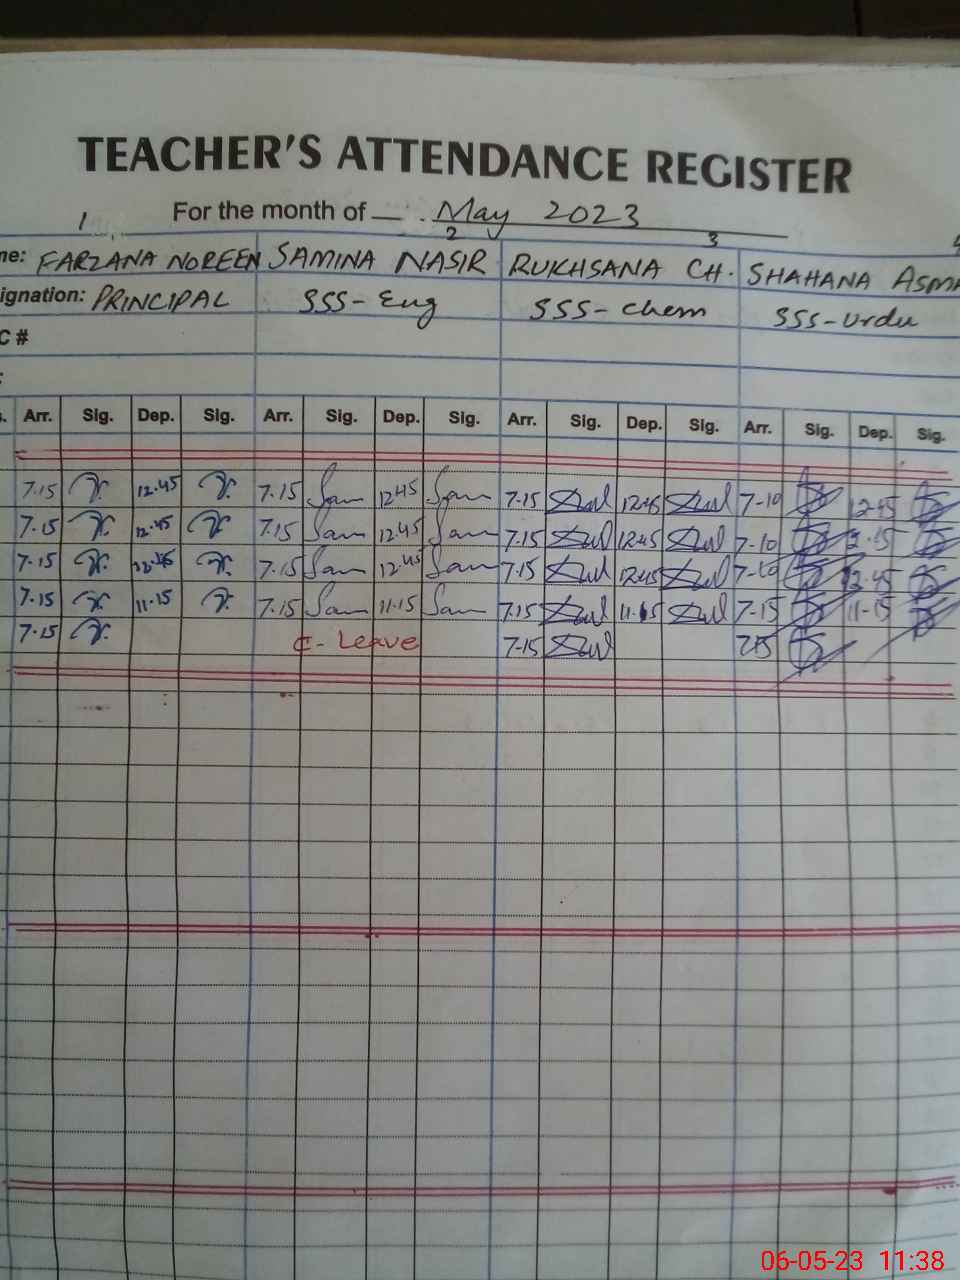 TEACHER'S ATTENDANCE REGISTER
1 For the month of May 2023
2 3
ne: FARZANA NOREEN SAMINA NASIR RUKHSANA CH. SHAHANA ASMA
ignation: PRINCIPAL SSS-Eng SSS-chem SSS-urdu
C #
Arr. Sig. Dep. Sig. Arr. Sig. Dep. Sig. Arr. Sig. Dep. Sig. Arr. Sig. Dep. Sig.
7.15 12.45 7.15 Sam 12.45 Sam 7-15 12.45 7-10 12.45
7.15 12.45 7.15 Sam 12.45 Sam 7.15 12.45 7-10
7.15 12.45 7.15 Sam 12.45 Sam 7.15 12.45 7-10 12.45
7.15 11.15 7.15 Sam 11.15 Sam 7.15 11.15 7-15 11-15
7.15 C-Leave 7-15 7.15
06-05-23 11:38